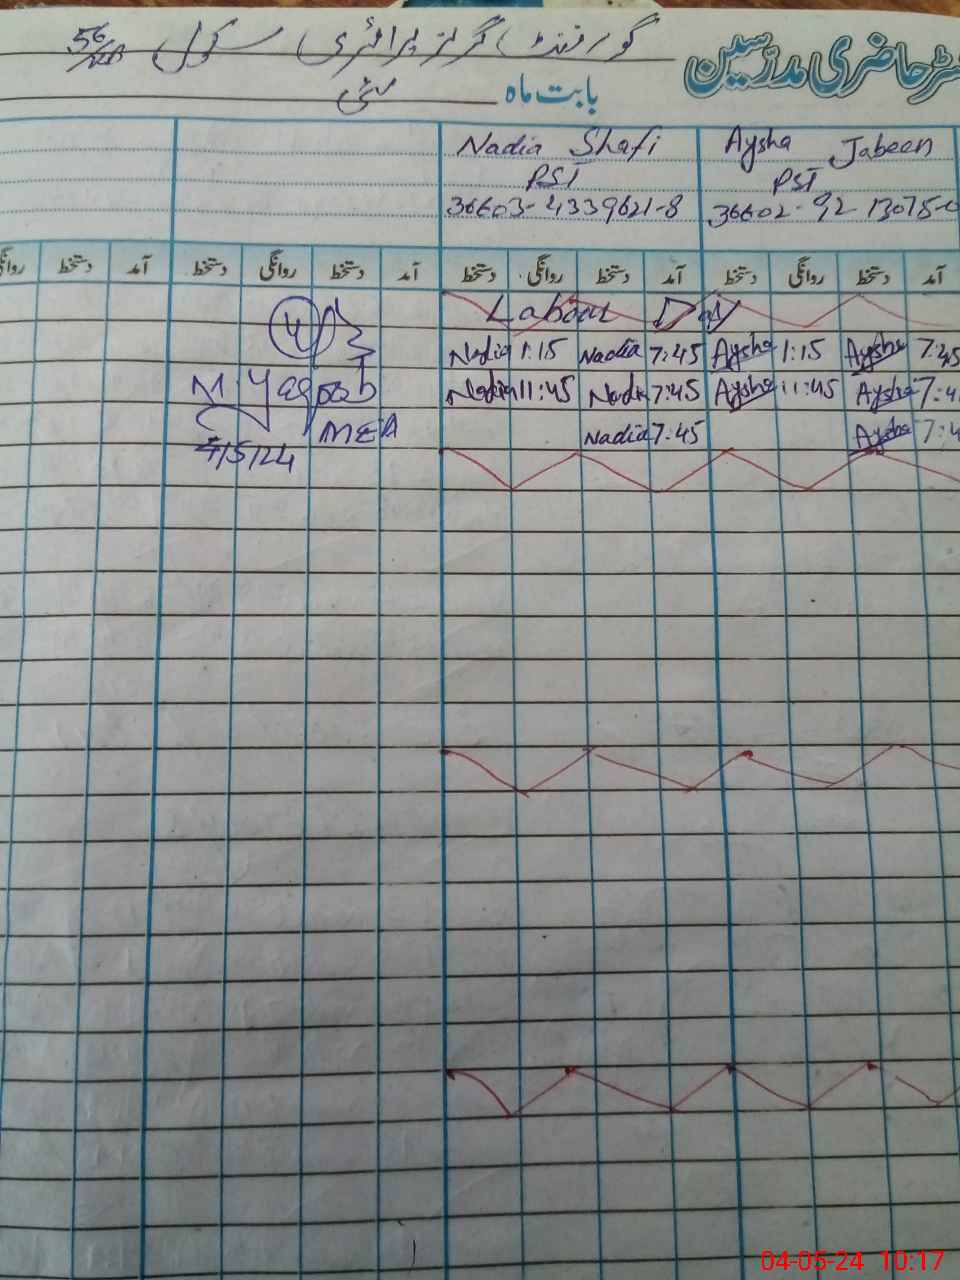 گورنمنٹ گرلز پرائمری سکول 56
حاضری مدرسین
بابت ماہ مئی
Nadia Shafi Aysha Jabeen
PST PST
36603-4339621-8 36602-92 13075-0
دستخط آمد دستخط روانگی دستخط آمد دستخط روانگی دستخط آمد
Labour Day
4
Nadia 1:15 Nadia 7:45 Aysha 1:15 Aysha 7:45
M. Yaqoob Nadia 11:45 Nadia 7:45 Aysha 11:45 Aysha 7:4
MEA Nadia 7:45 Aysha 7:4
4/5/24
04-05-24 10:17